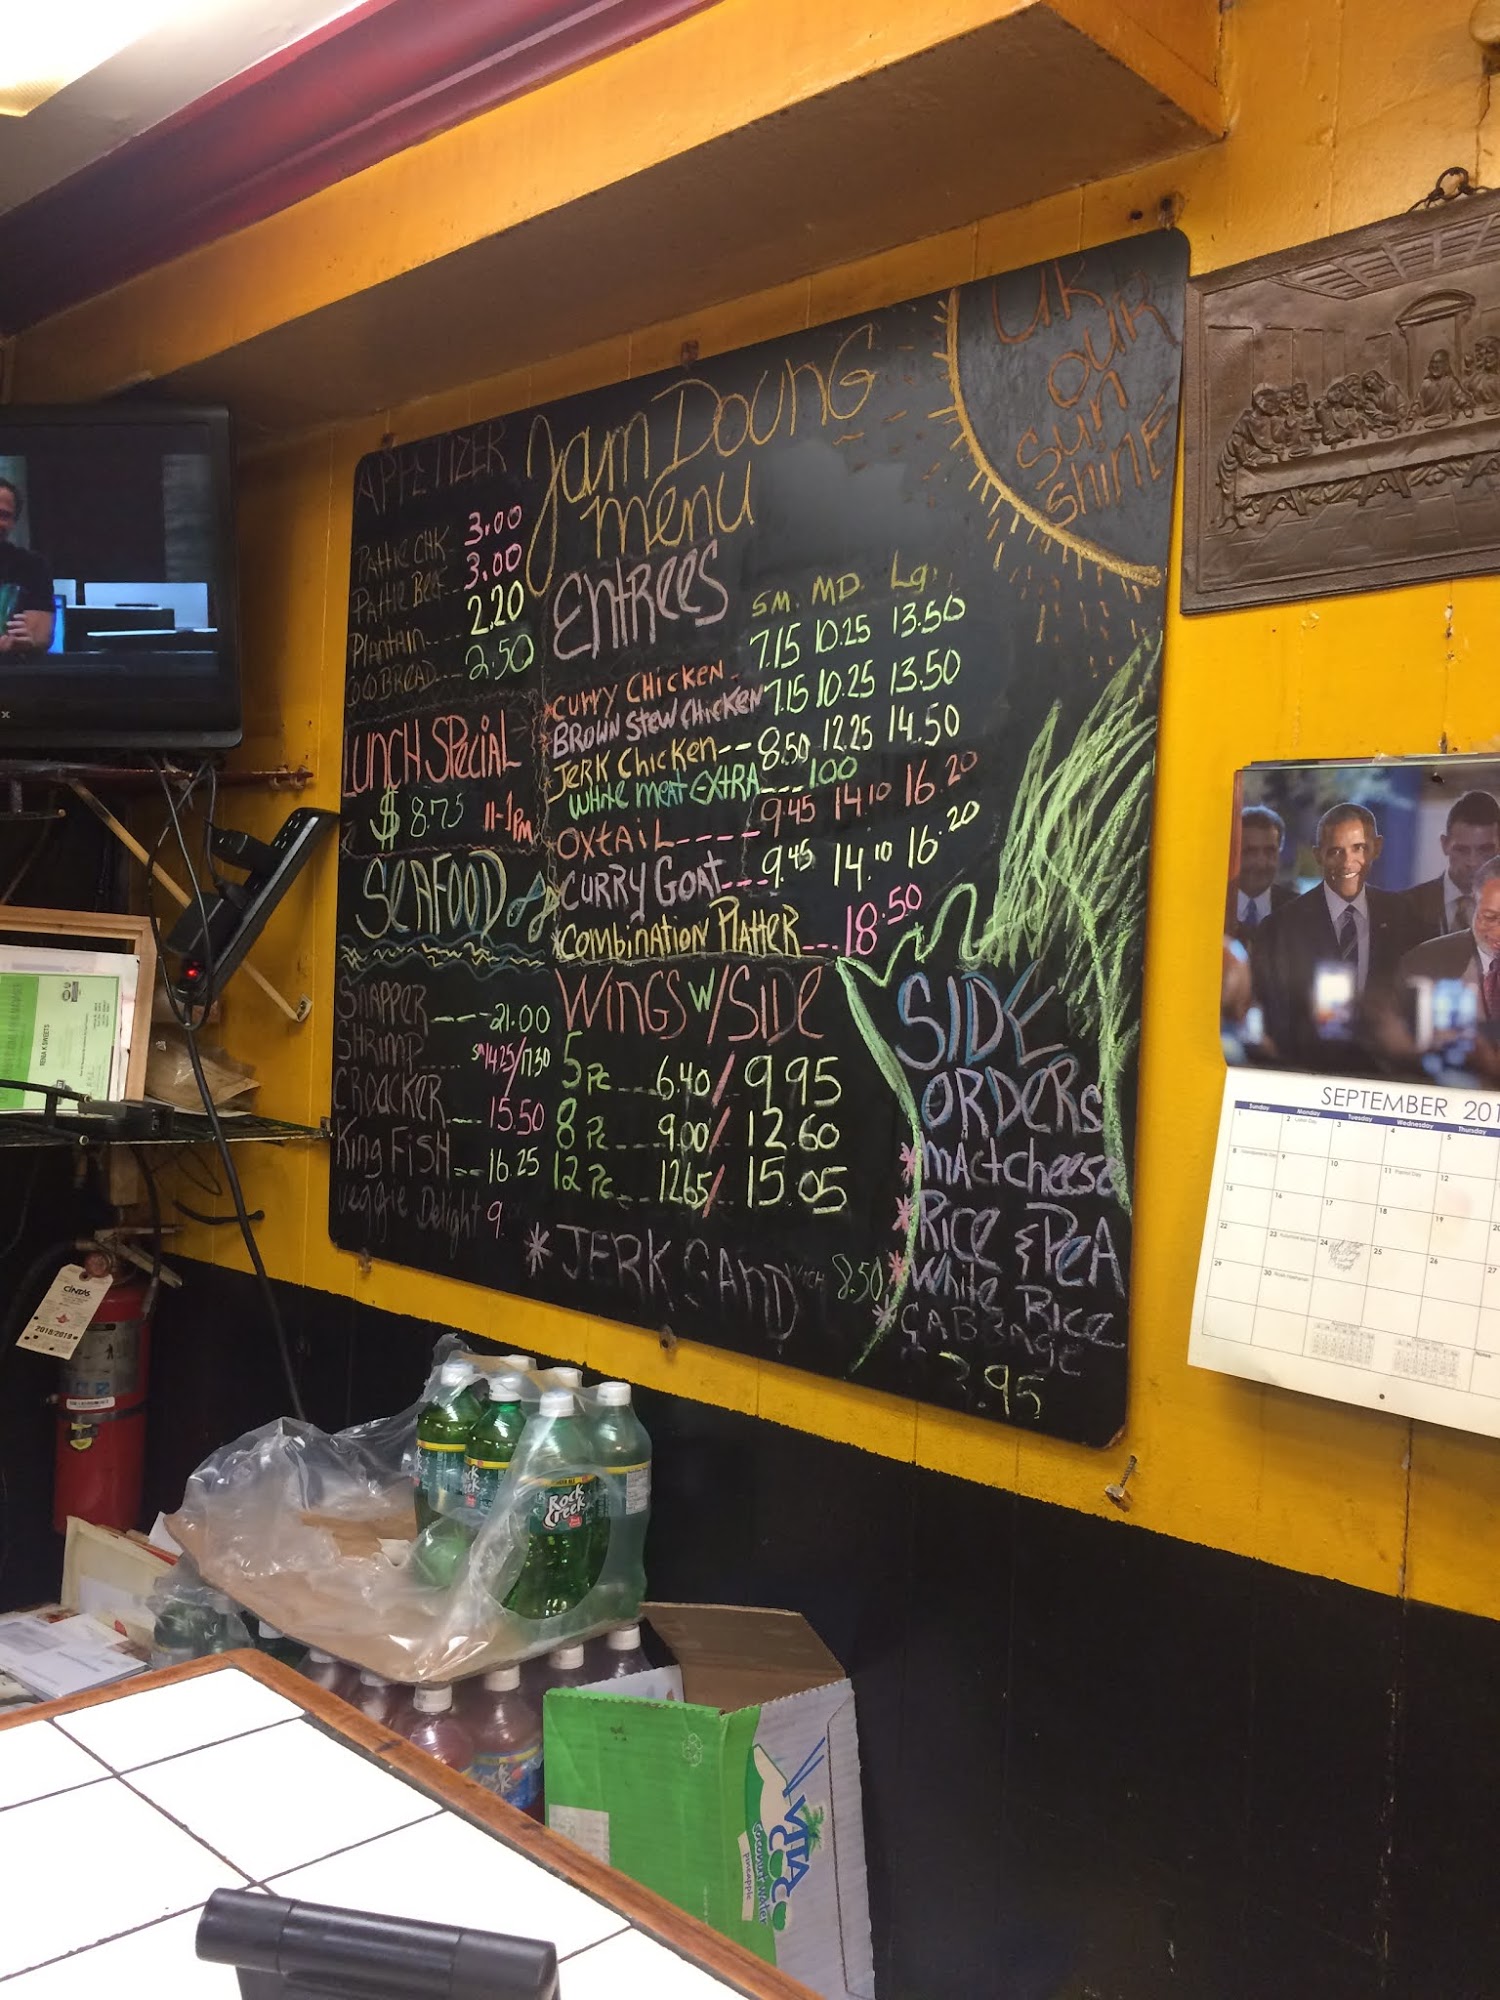 Jam Doung
Menu
UR
OUR
Sun
shine
APPETIZER
Pattie CHK- 3.00
Pattie Beef- 3.00
Plantain---- 2.20
COCOBREAD--- 2.50
LUNCH SPECIAL
$ 8.75 11-1pm
SEAFOOD
SNAPPER ---- 21.00
SHRIMP---- SM 14.25/17.30
CROACKER--- 15.50
King FISH--- 16.25
Veggie Delight 9.
ENTREES
SM. MD. Lg.
CURRY CHICKEN- 7.15 10.25 13.50
BROWN STEW CHICKEN 7.15 10.25 13.50
JERK Chicken--- 8.50 12.25 14.50
White meat EXTRA--- 1.00
OXTAIL---- 9.45 14.10 16.20
CURRY GOAT--- 9.45 14.10 16.20
COMBINATION PLATTER--- 18.50
WINGS W/SIDE
5 Pc --- 6.40 / 9.95
8 Pc --- 9.00 / 12.60
12 Pc --- 12.65 / 15.05
* JERK SANDWICH 8.50
SIDE
ORDERS
* MActcheese
* Rice & PeA
* White Rice
* CABBAge
.95
SEPTEMBER 201
Sunday Monday Tuesday Wednesday Thursday
1 2 3 4 5
8 9 10 11 12
15 16 17 18 19
22 23 24 25 26
29 30
CINTAS
2018/2019
Rock
Creek
Rock
VITA
COCO
coconut water
pineapple